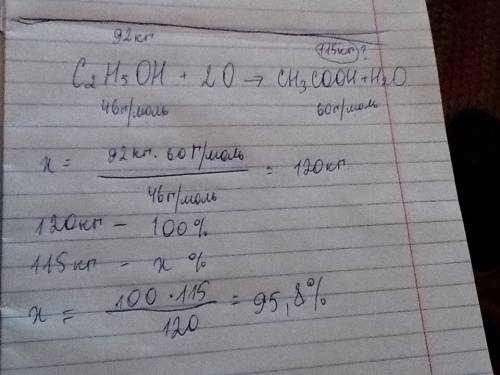 92кг 115кг?
C2H5OH + 2O → CH3COOH + H2O
46г/моль 60г/моль
x = 92кг · 60г/моль / 46г/моль = 120кг.
120кг – 100%
115кг – x %
x = 100 · 115 / 120 = 95,8%